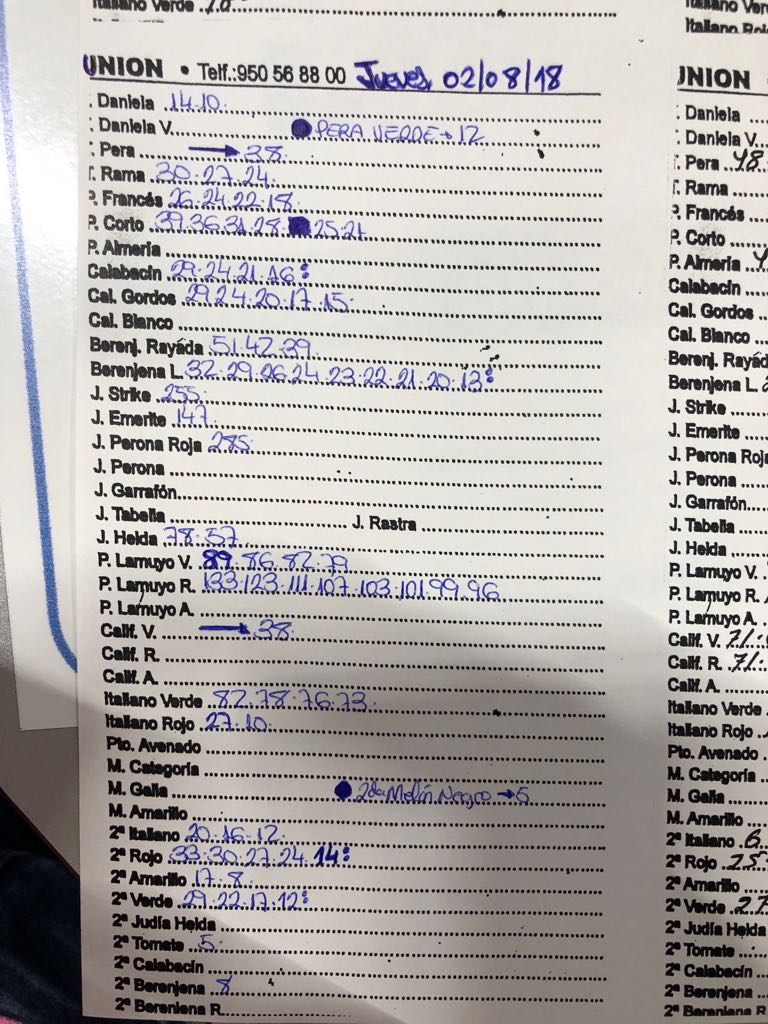 Italiano Verde
UNION • Telf.:950 56 88 00 Jueves 02/08/18
T. Daniela 14.10.
T. Daniela V. PERA VERDE → 12
T. Pera → 38.
T. Rama 30.27.24.
P. Francés 26.24.22.18.
P. Corto 39.36.31.28. 25.21
P. Almería
Calabacín 29.24.21.16:
Cal. Gordos 29.24.20.17.15.
Cal. Blanco
Berenj. Rayáda 51.42.39.
Berenjena L. 32.29.26.24.23.22.21.20.13:
J. Strike 255.
J. Emerite 147.
J. Perona Roja 285.
J. Perona
J. Garrafón
J. Tabella J. Rastra
J. Helda 78.57.
P. Lamuyo V. 89.86.82.79
P. Lamuyo R. 133.123.111.107.103.101.99.96
P. Lamuyo A.
Calif. V. → 38.
Calif. R.
Calif. A.
Italiano Verde 82.78.76.73.
Italiano Rojo 27.10.
Pto. Avenado
M. Categoría
M. Galia 2da Melón Negro → 5
M. Amarillo
2ª Italiano 20.16.12.
2ª Rojo 33.30.27.24.14:
2ª Amarillo 17.8.
2ª Verde 29.22.17.12:
2ª Judía Helda
2ª Tomate 5.
2ª Calabacín
2ª Berenjena 8
2ª Berenjena R.
Italiano Verde
Italiano Rojo
UNION
T. Daniela
T. Daniela V.
T. Pera 48
T. Rama
P. Francés
P. Corto
P. Almería
Calabacín
Cal. Gordos
Cal. Blanco
Berenj. Rayád
Berenjena L.
J. Strike
J. Emerite
J. Perona Roj
J. Perona
J. Garrafón
J. Tabella
J. Helda
P. Lamuyo V.
P. Lamuyo R.
P. Lamuyo A.
Calif. V. 71.
Calif. R. 71.
Calif. A.
Italiano Verde
Italiano Rojo
Pto. Avenado
M. Categoría
M. Galia
M. Amarillo
2ª Italiano 6.
2ª Rojo 25
2ª Amarillo
2ª Verde 27
2ª Judía Helda
2ª Tomate
2ª Calabacín
2ª Berenjena
2ª Berenjena R